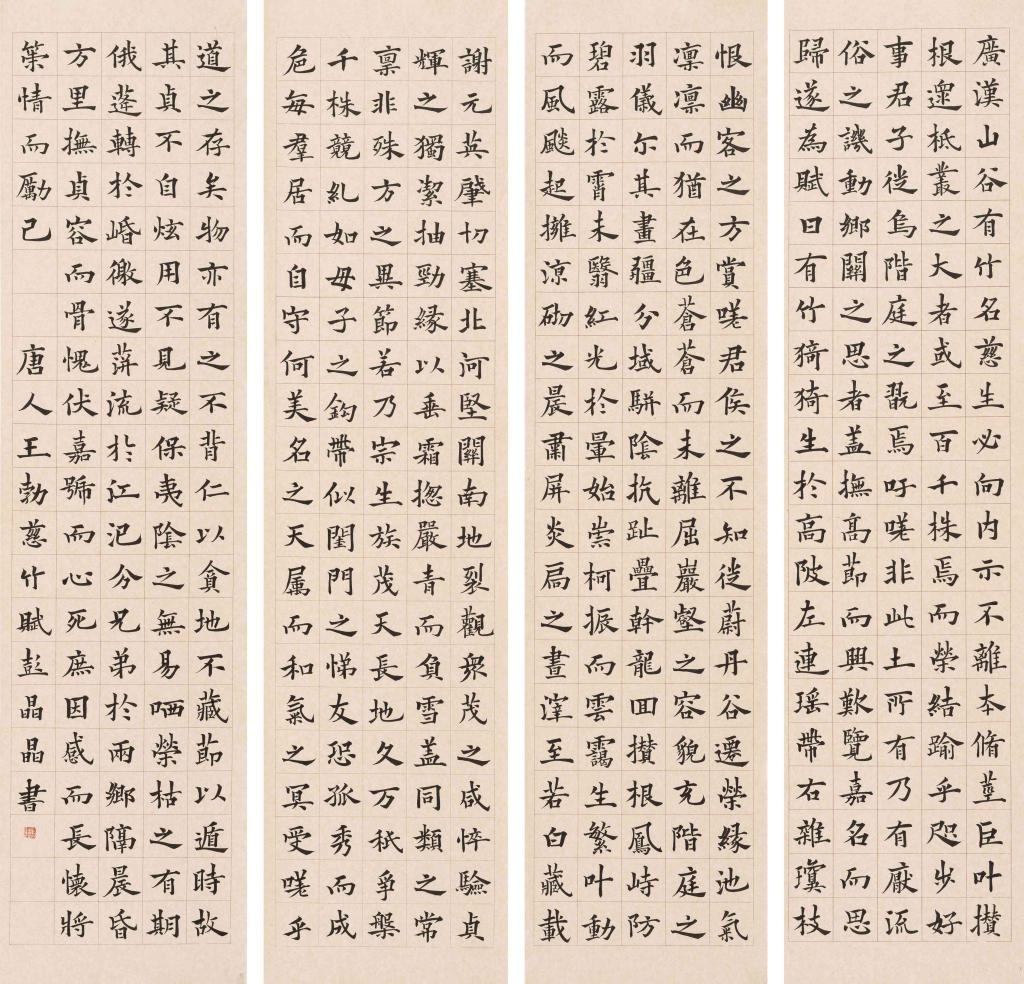 廣漢山谷有竹名慈生必向内示不離本脩莖巨叶攢
根遝柢叢之大者或至百千株焉而榮結踰乎咫步好
事君子徙為階庭之翫焉吁嗟非此土所有乃有厭流
俗之譏動鄉關之思者盖撫高節而興歎覽嘉名而思
歸遂為賦曰有竹猗猗生於高陂左連瑶帶右雜瓊枝
恨幽客之方賞嗟君侯之不知徙蔚丹谷遷榮緣池氣
凛凛而猶在色蒼蒼而未離屈巖壑之容貌充階庭之
羽儀尔其畫疆分域駢陰抗趾疊幹龍回攢根鳳峙防
碧露於霄末翳紅光於暈始崇柯振而雲靄生繁叶動
而風飈起擁凉砌之晨肅屏炎扃之晝滓至若白藏載
謝元英肇切塞北河堅關南地裂觀衆茂之咸悴驗貞
輝之獨潔抽勁緣以垂霜揔嚴青而負雪盖同類之常
禀非殊方之異節若乃宗生族茂天長地久万秖爭槃
千株競糺如母子之鈎帶似閨門之悌友恐孤秀而成
危每羣居而自守何美名之天属而和氣之冥受嗟乎
道之存矣物亦有之不背仁以貪地不藏節以遁時故
其貞不自炫用不見疑保夷陰之無易哂榮枯之有期
俄蓬轉於岷徼遂萍流於江汜分兄弟於兩鄉隔晨昏
方里撫貞容而骨愧伏嘉號而心死庶因感而長懷將
策情而勵己 唐人王勃慈竹賦彭晶晶書